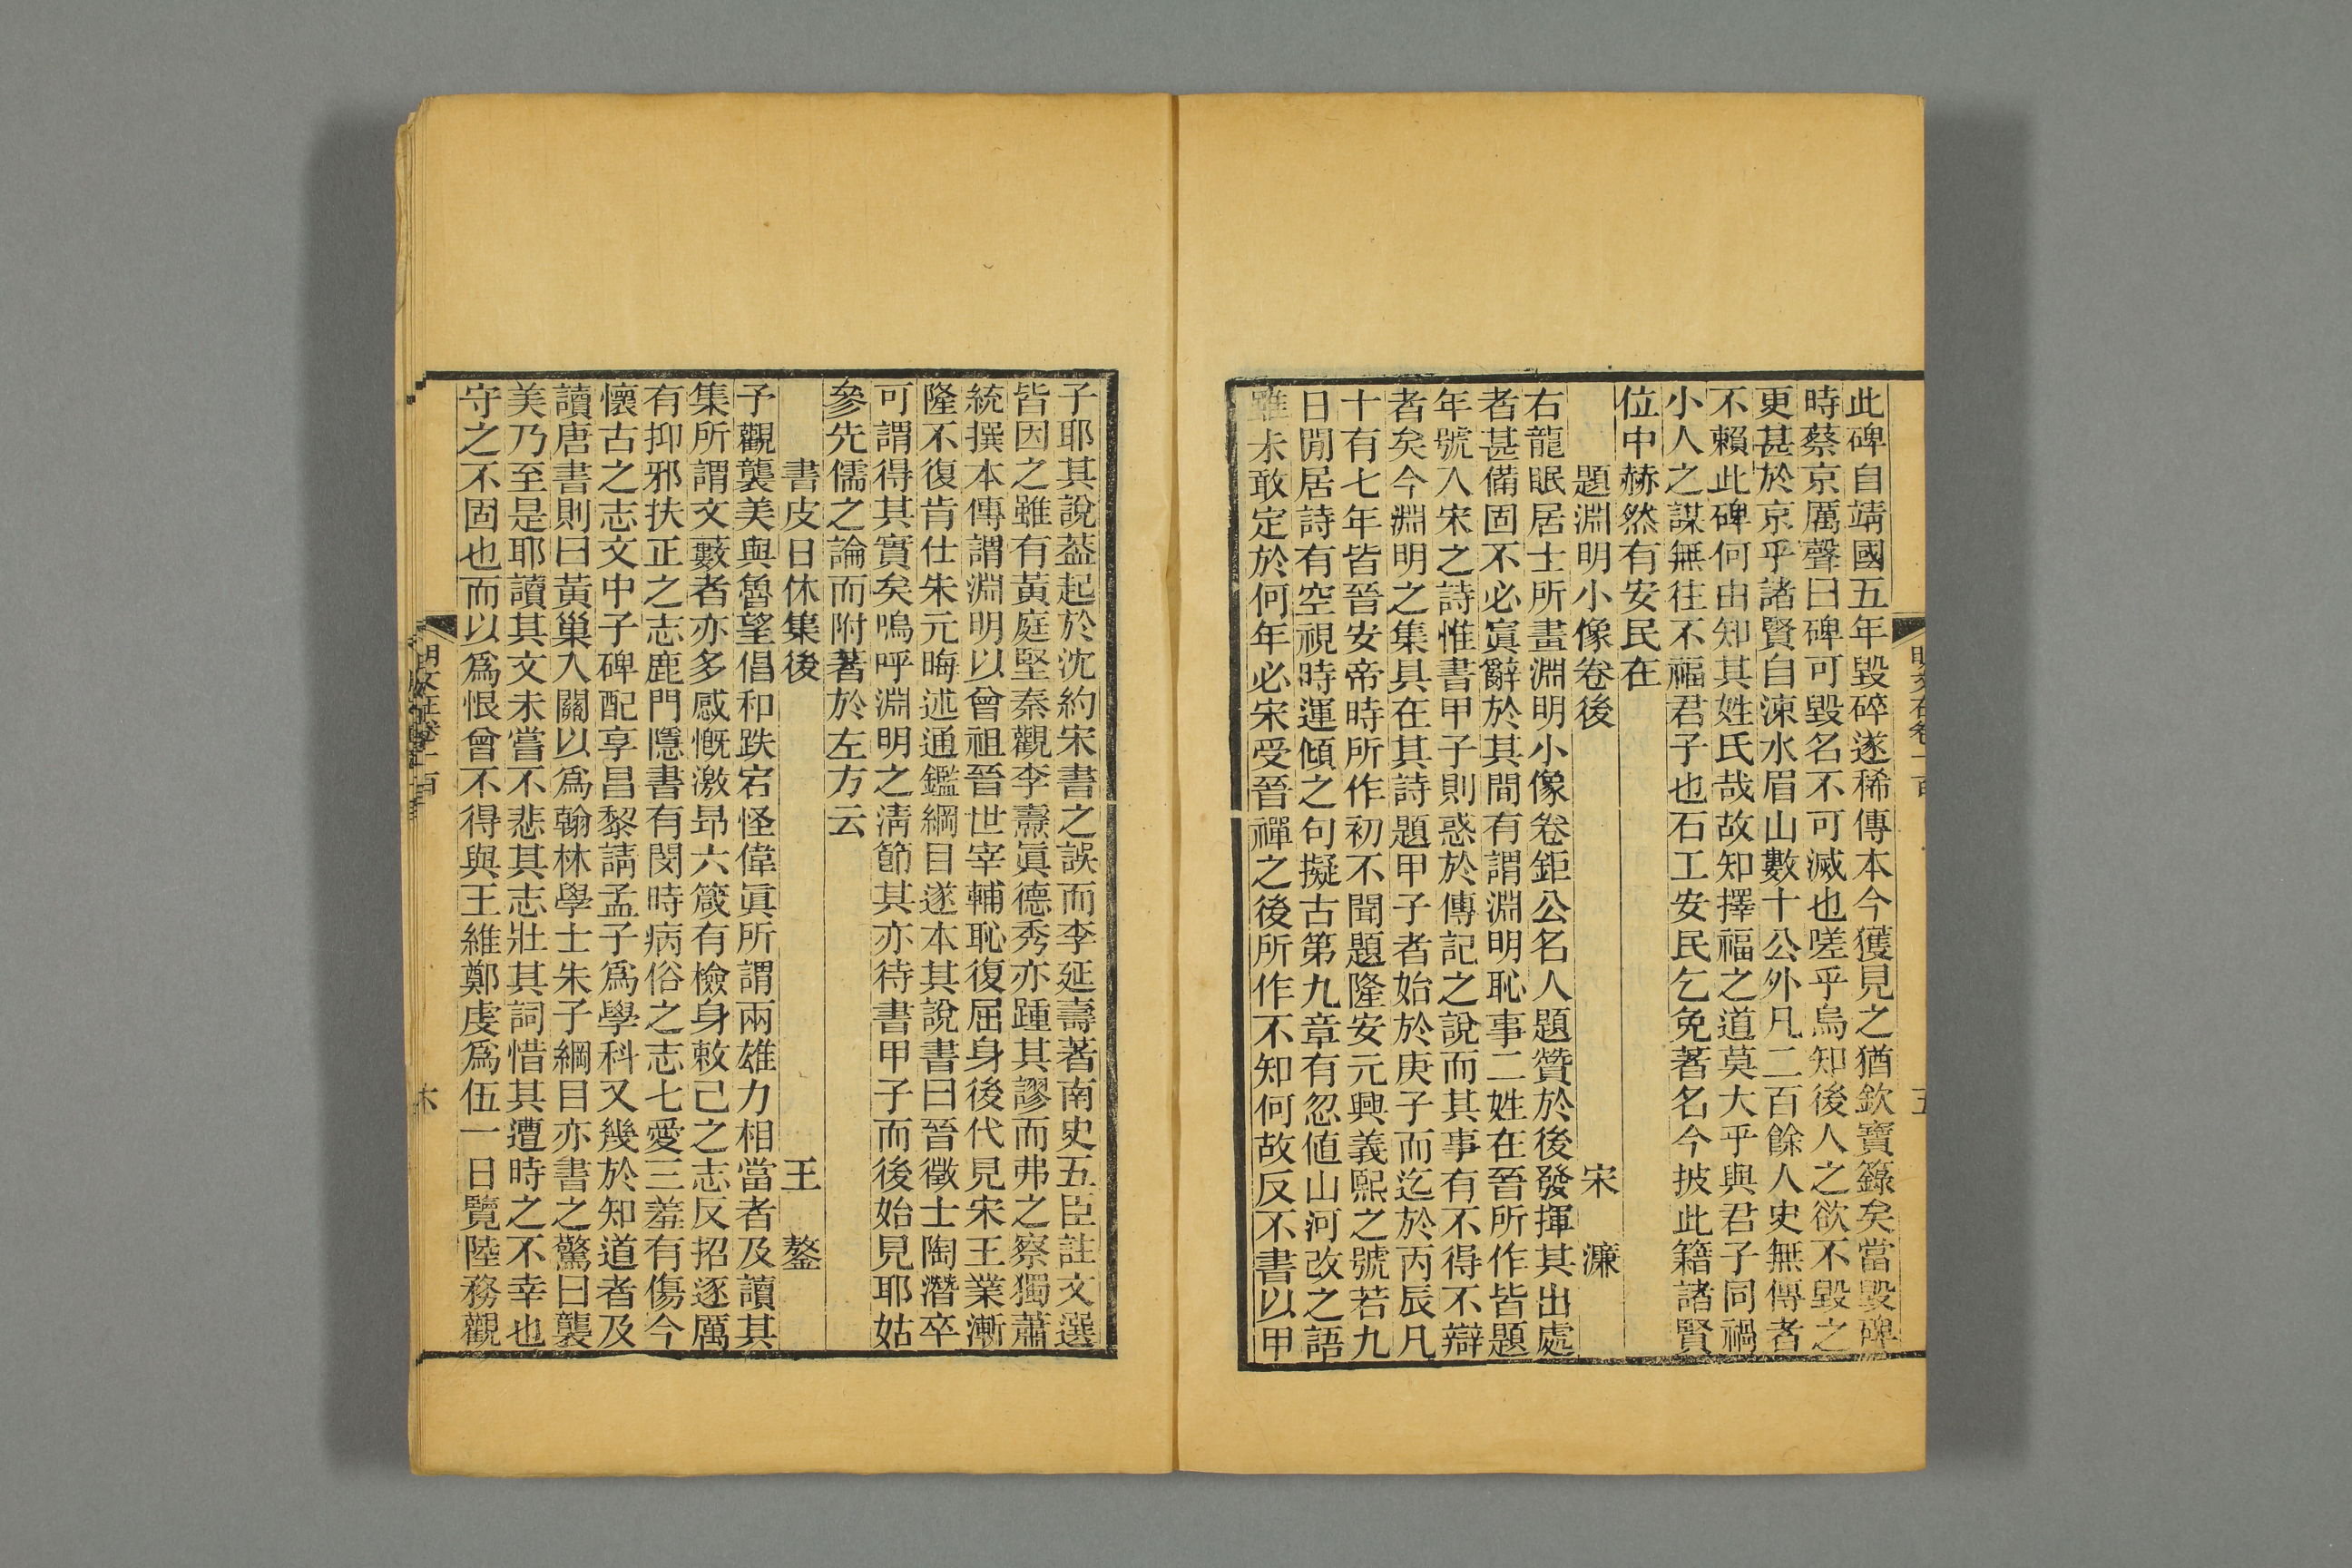 此碑自靖國五年毀碎遂稀傳本今獲見之猶欽寶籙矣當毀碑
時蔡京厲聲曰碑可毀名不可滅也嗟乎烏知後人之欲不毀之
更甚於京乎諸賢自涑水眉山數十公外凡二百餘人史無傳者
不賴此碑何由知其姓氏哉故知擇福之道莫大乎與君子同禍
小人之謀無往不福君子也石工安民乞免著名今披此籍諸賢
位中赫然有安民在
題淵明小像卷後 宋 濂
右龍眠居士所畫淵明小像卷鉅公名人題贊於後發揮其出處
者甚備固不必寘辭於其間有謂淵明恥事二姓在晉所作皆題
年號入宋之詩惟書甲子則惑於傳記之說而其事有不得不辯
者矣今淵明之集具在其詩題甲子者始於庚子而迄於丙辰凡
十有七年皆晉安帝時所作初不聞題隆安元興義熙之號若九
日閒居詩有空視時運傾之句擬古第九章有忽値山河改之語
雖未敢定於何年必宋受晉禪之後所作不知何故反不書以甲
子耶其說葢起於沈約宋書之誤而李延壽著南史五臣註文選
皆因之雖有黃庭堅秦觀李燾眞德秀亦踵其謬而弗之察獨蕭
統撰本傳謂淵明以曾祖晉世宰輔恥復屈身後代見宋王業漸
隆不復肯仕朱元晦述通鑑綱目遂本其說書曰晉徵士陶潛卒
可謂得其實矣嗚呼淵明之淸節其亦待書甲子而後始見耶姑
參先儒之論而附著於左方云
書皮日休集後 王 鏊
予觀襲美與魯望倡和跌宕怪偉眞所謂兩雄力相當者及讀其
集所謂文藪者亦多感慨激昂六箴有檢身敕己之志反招逐厲
有抑邪扶正之志鹿門隱書有閔時病俗之志七愛三羞有傷今
懷古之志文中子碑配享昌黎請孟子爲學科又幾於知道者及
讀唐書則曰黃巢入關以爲翰林學士朱子綱目亦書之驚曰襲
美乃至是耶讀其文未嘗不悲其志壯其詞惜其遭時之不幸也
守之不固也而以爲恨曾不得與王維鄭虔爲伍一日覽陸務觀